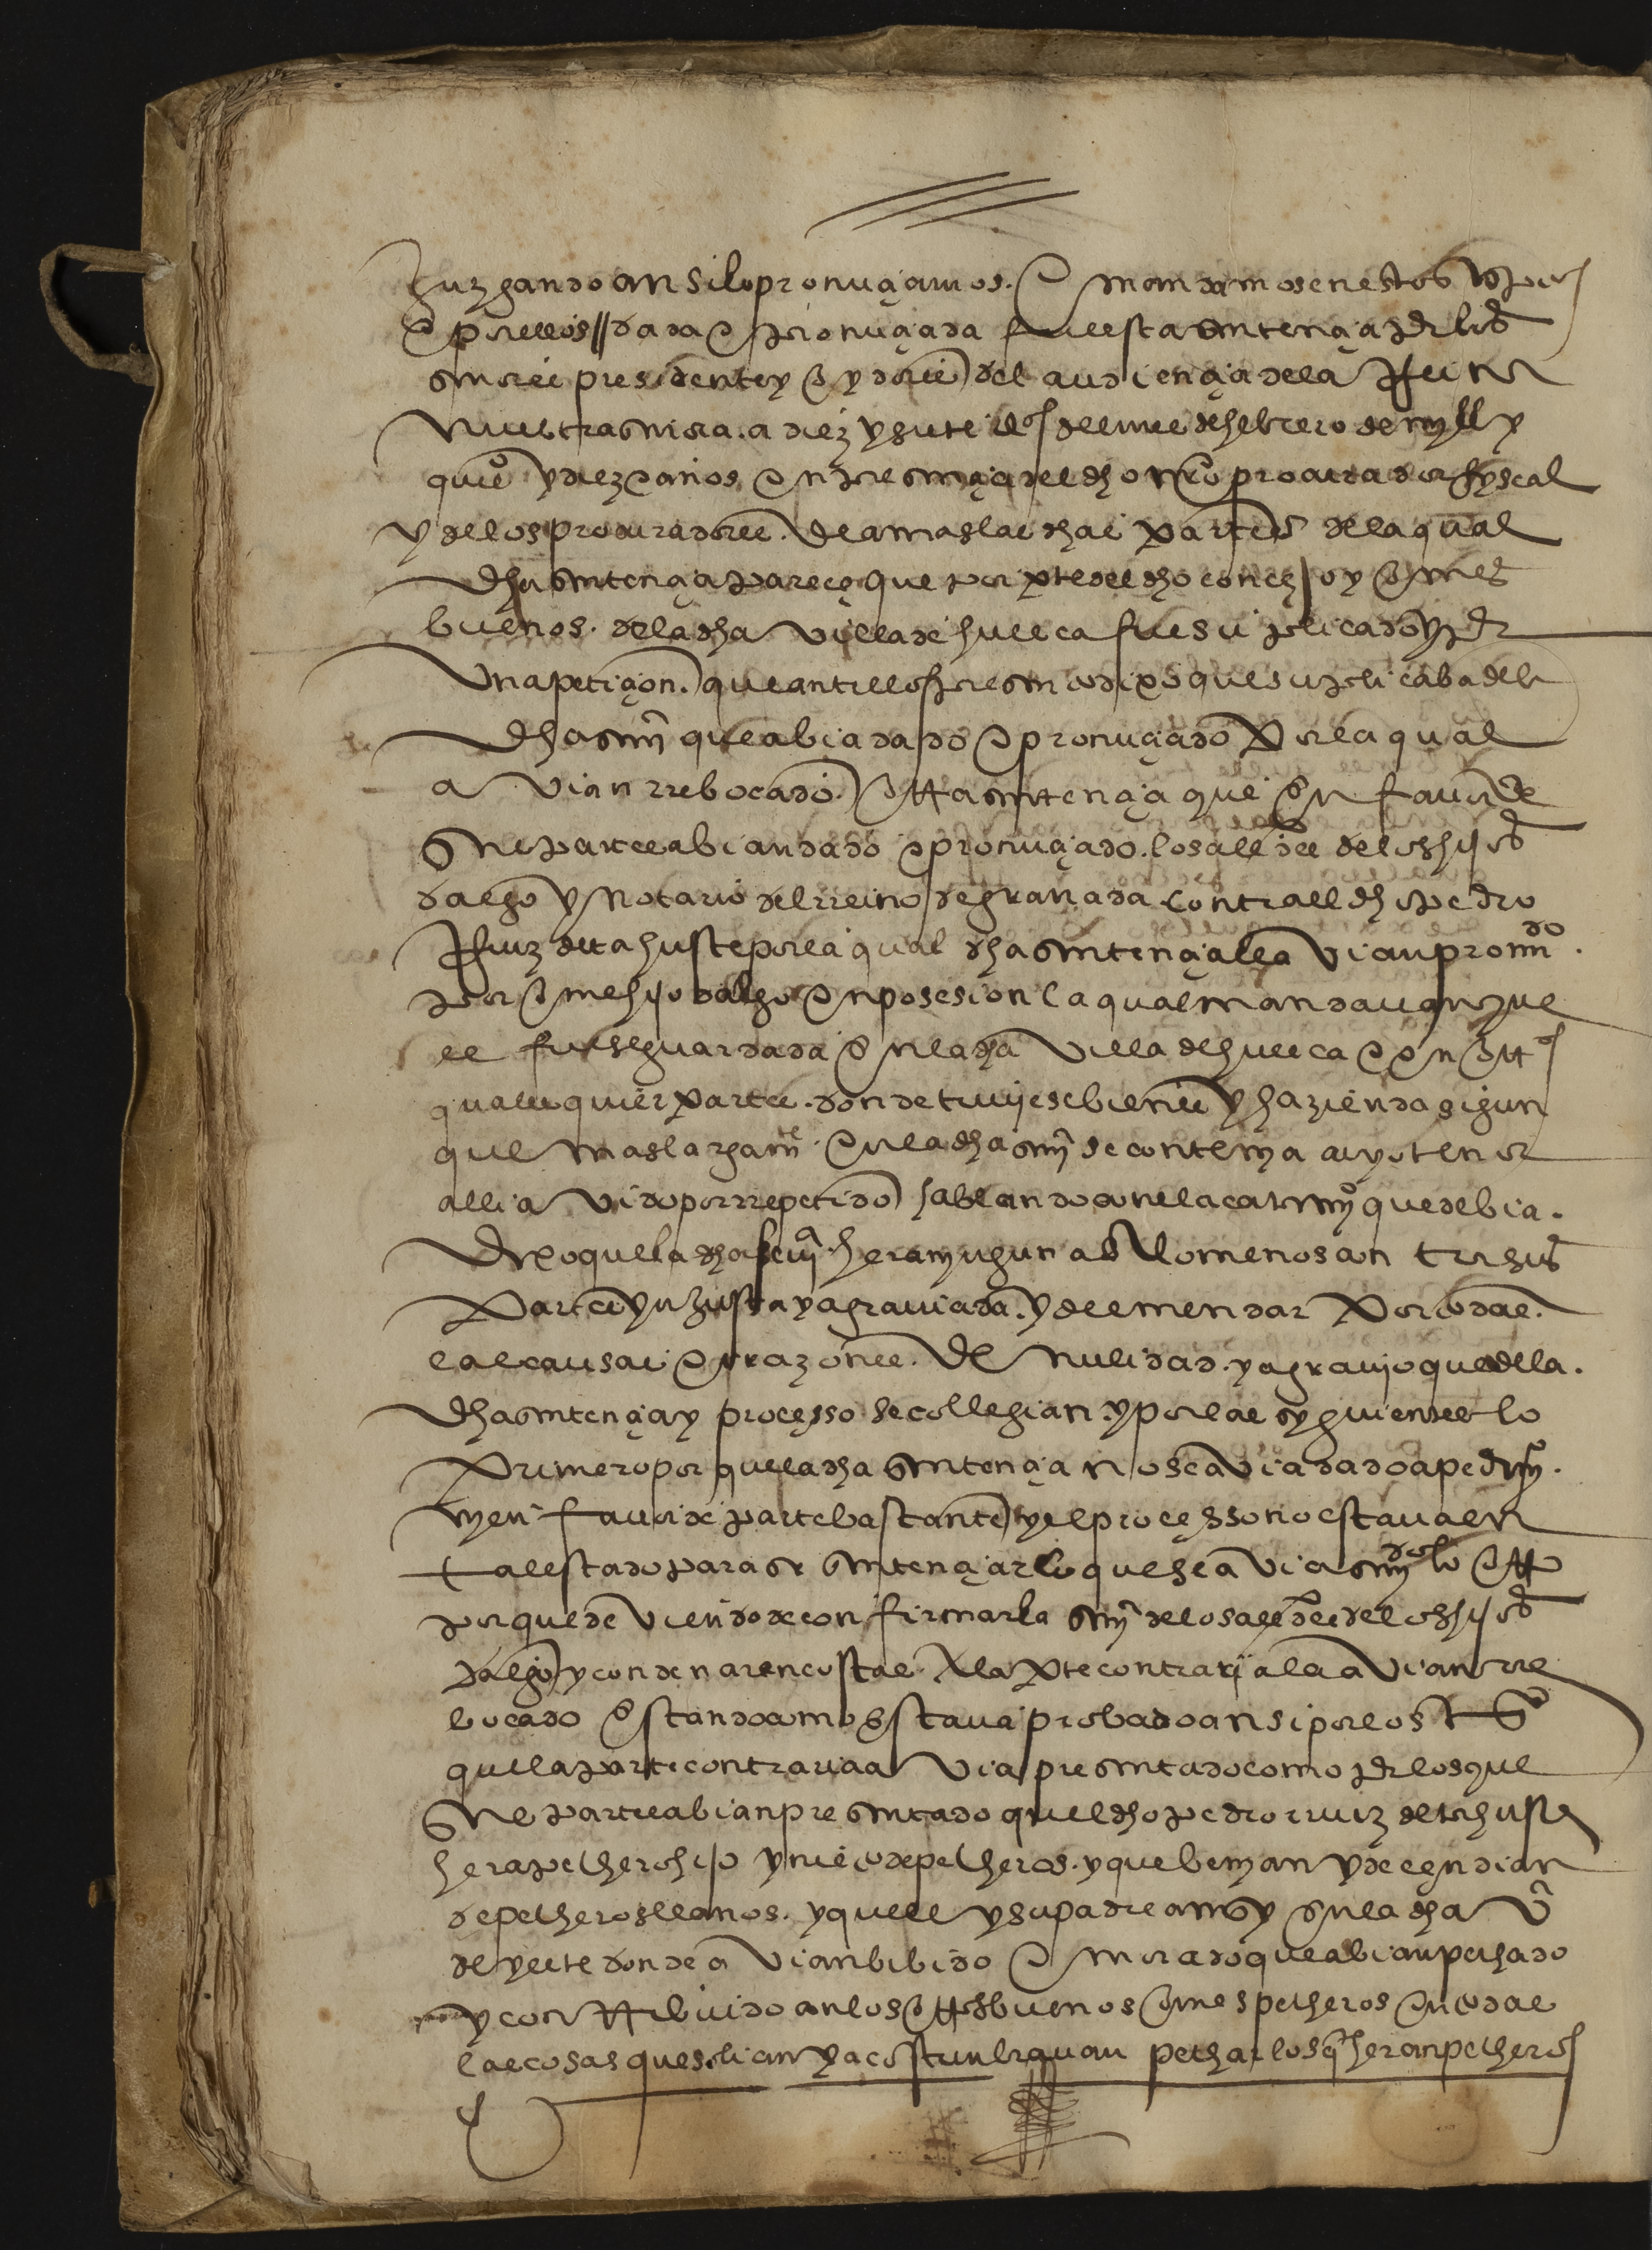 Juzgando ansi lo pronunçiamos e mandamos en estos escriptos
e por ellos // dada e pronunçiada fue esta sentençia por los
señores presidente y oydores del audiençia de la Reina
nuestra señora a diez y siete dias del mes de hebrero de myll y
quios y diez años en presençia del dho nro procurador fyscal
y de los procuradores de amas las dhas partes de la qual
dha sentençia pareçe que por pte del dho conçejo y omes
buenos de la dha villa de huesca fue suplicado y por
una petiçion que ante llos presento dixo que suplicaba de la
dha sença que abia dado e pronunçiado por la qual
avian rrebocado otra sentençia que en favor de
su parte abian dado e pronunçiado los alldes de los hijos
dalgo y notario del rreino de granada contra el dho pedro
Ruiz de tahuste por la qual dha sentençia lo avian pronunçdo
por ome hijo dalgo en posesion la qual mandavan que
le fuese guardada en la dha villa de huesca e en otras
qualesquier partes donde tuviese bienes y hazienda sigun
que mas largamte en la dha sença se contenya cuyo tenor
alli avido por rrepetido hablando con el acatamyo que debia
Dixo que la dha sença hera nynguna o a lo menos con tra sus
partes ynjusta y agraviada y de emendar por todas
las causas e rrazones de nulidad y agravyo que de la
dha sentençia y proçesso se collegian y por las syguientes lo
Primero por que la dha sentençia no se avia dado a pedimyo
ny en favor de parte bastante y el proçesso no estava en
tal estado para se sentençiar lo que se avia sentençdo lo otro
porque deviendo de confirmar la sença de los alldes de los hijos
dalgo y condenar en costas a la pte contraria la avian rre
bocado estando como estava probado ansi por los tos
que la parte contraria avia presentado como por los que
su parte abian presentado quel dho pedro rruiz de tahuste
hera pechero hijo y nieto de pecheros y que benyan y deçendian
de pecheros llanos y quel y su padre ansy en la dha va
de yeste donde avian bibido e morado que abian pechado
y contribuido con los otros buenos omes pecheros en todas
las cosas que solian y acostunbravan pechar los q heran pecheros